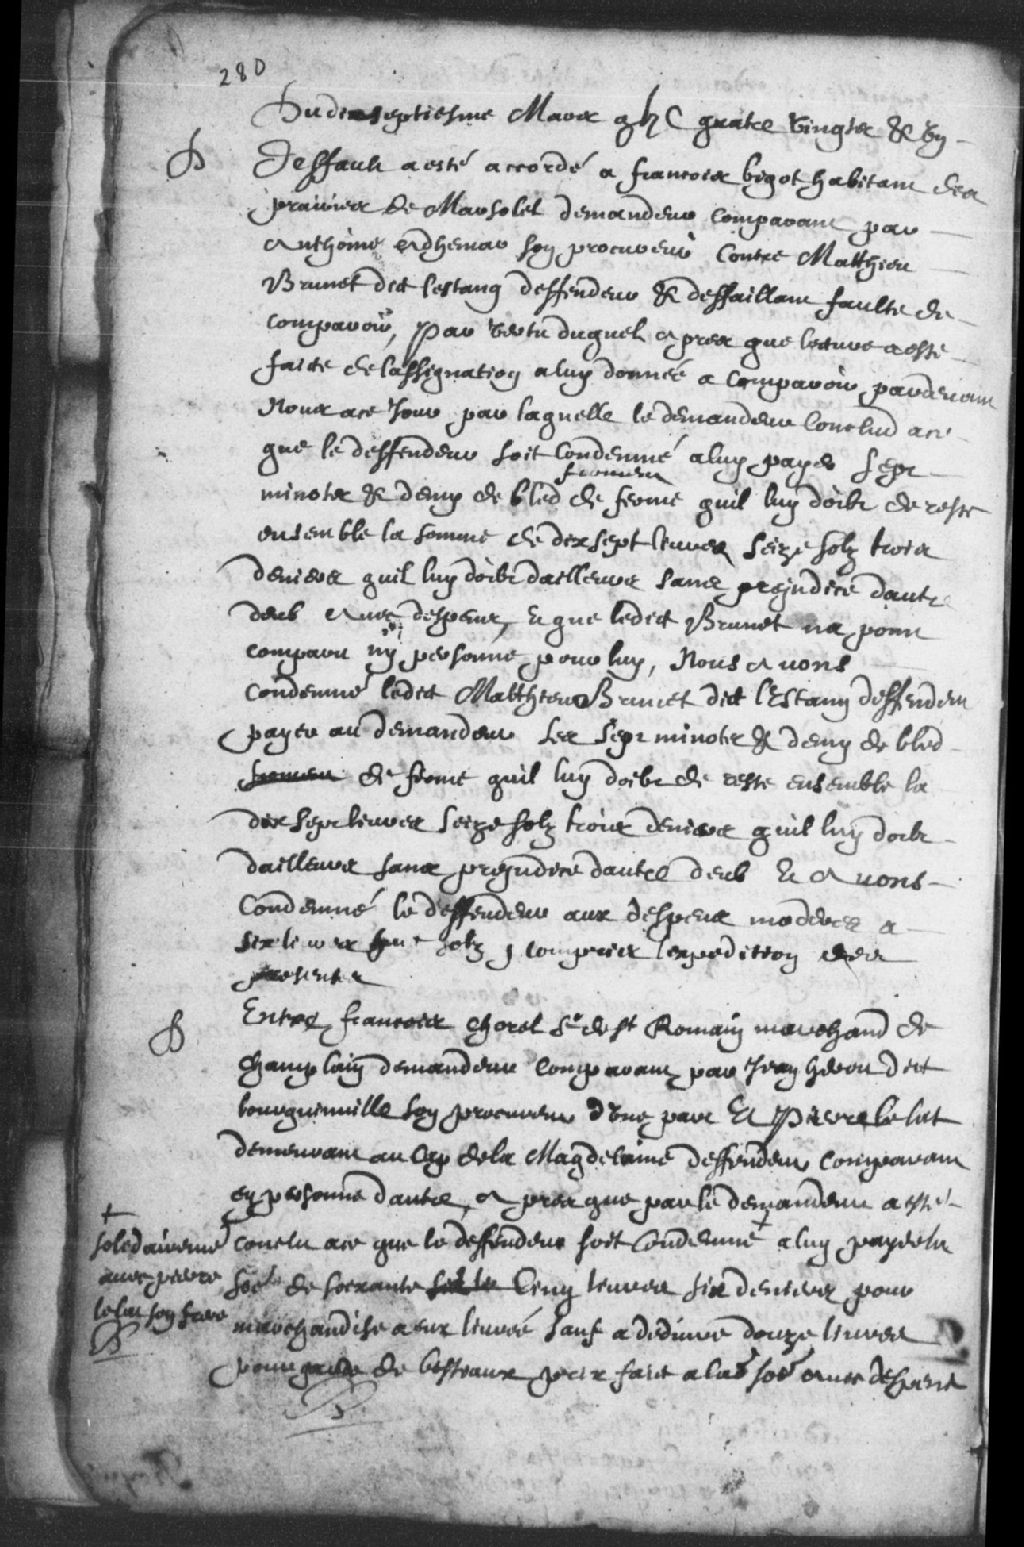 280
Du dixseptiesme Mars gbjC quatre vingts & un
Deffault a esté accordé a francois bigot habitant des
prairies de Marsolet demandeur comparant par
Anthoine Adhemar son procureur Contre Matthieu
Brunet dit lestang deffendeur & deffaillant faulte de
comparoir, Par vertu duquel apres que lecture a esté
faicte de lassignation a luy donnée a comparoir pardevant
Nous a ce Jour par laquelle le demandeur conclud a ce
que le deffendeur soit Condemné a luy payer sept
froment
minots & demy de bled de ferme quil luy doibt de reste
ensemble la somme de dix sept livres seize solz trois
deniers quil luy doibt dailleurs sans prejudice dautre
deub Avec despens, Et que ledict Brunet na point
comparu ny personne pour luy, Nous Avons
Condemné ledict Matthieu Brunet dict lEstang deffendeur
payer au demandeur les sept minots & demy de bled
froment de ferme quil luy doibt de reste ensemble la
dix sept livres seize solz trois deniers quil luy doibt
dailleurs sans prejudice dautre deub Et Avons
Condemné le deffendeur aux despens moderés a
six livres solz y compris lexpedition des
presentes
Entre francois Chorel Sr. de st Romain marchand de
Champlain demandeur comparant par Jean hérou dit
bourguinville son procureur d'une part Et Pierre le lat
demeurant au Cap de la Magdelaine deffendeur comparant
en personne dautre, Apres que par le demandeur a esté
conclu a ce que le deffendeur soit Condemné + a luy payer la
+
solidairement
avec pierre
le lat son frere
soe. de soixante cinq livres six deniers pour
marchandise a eux livrée sauf a deduire douze livres
pour garde de bestiaux prix faict a lad. soe. avec despens